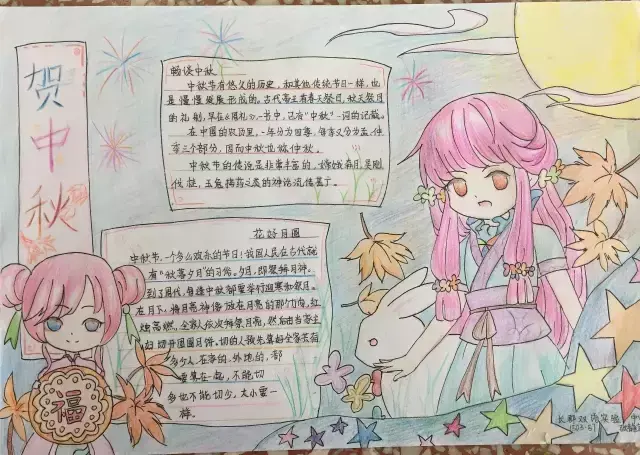 贺中秋
畅谈中秋
中秋节有悠久的历史,和其他传统节日一样,也
是慢慢发展形成的。古代帝王有春天祭日,秋天祭月
的礼制,早在《周礼》一书中,已有“中秋”一词的记载。
在中国的农历里,一年分为四季,每季又分为孟、仲、
季三个部分,因而中秋也称仲秋。
中秋节的传说是非常丰富的,嫦娥奔月,吴刚
伐桂,玉兔捣药之类的神话流传甚广。
花好月圆
中秋节,一个多么欢乐的节日!我国人民在古代就
有“秋暮夕月”的习俗。夕月,即祭拜月神。
到了周代,每逢中秋都要举行迎寒和祭月。
在月下,将月亮神像放在月亮的那个方向,红
烛高燃,全家人依次拜祭月亮,然后由当家主
妇切开团圆月饼。切的人预先算好全家共有
多少人,在家的、外地的,都
要算在一起,不能切
多也不能切少,大小要一
样。
福
长郡双